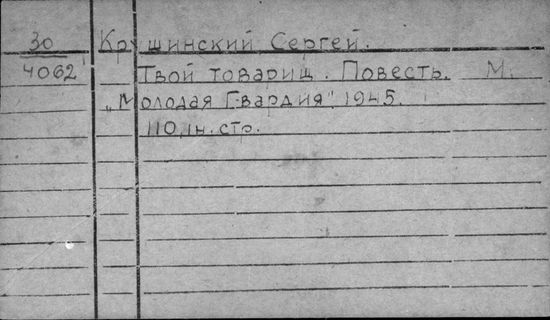 30 Крушинский Сергей.
4062 Твой товарищ. Повесть. М.
„Молодая Гвардия", 1945.
110, н. стр.